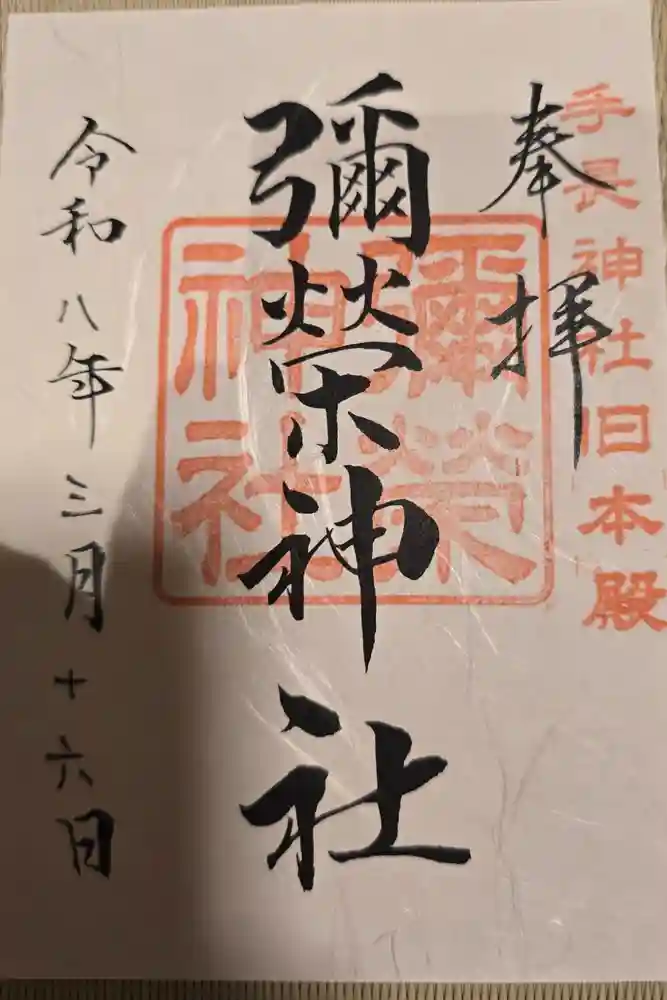 手長神社旧本殿
奉拝
彌榮神社
彌榮
神社
令和八年三月十六日